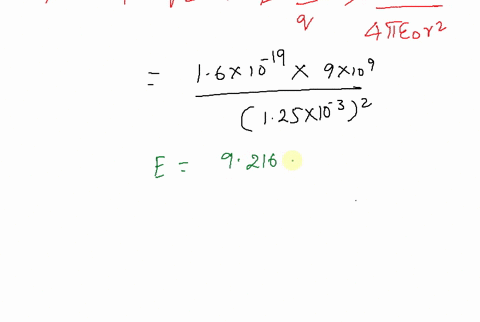 q 4πε0r²
= 1.6×10⁻¹⁹ × 9×10⁹
(1.25×10⁻³)²
E = 9.216